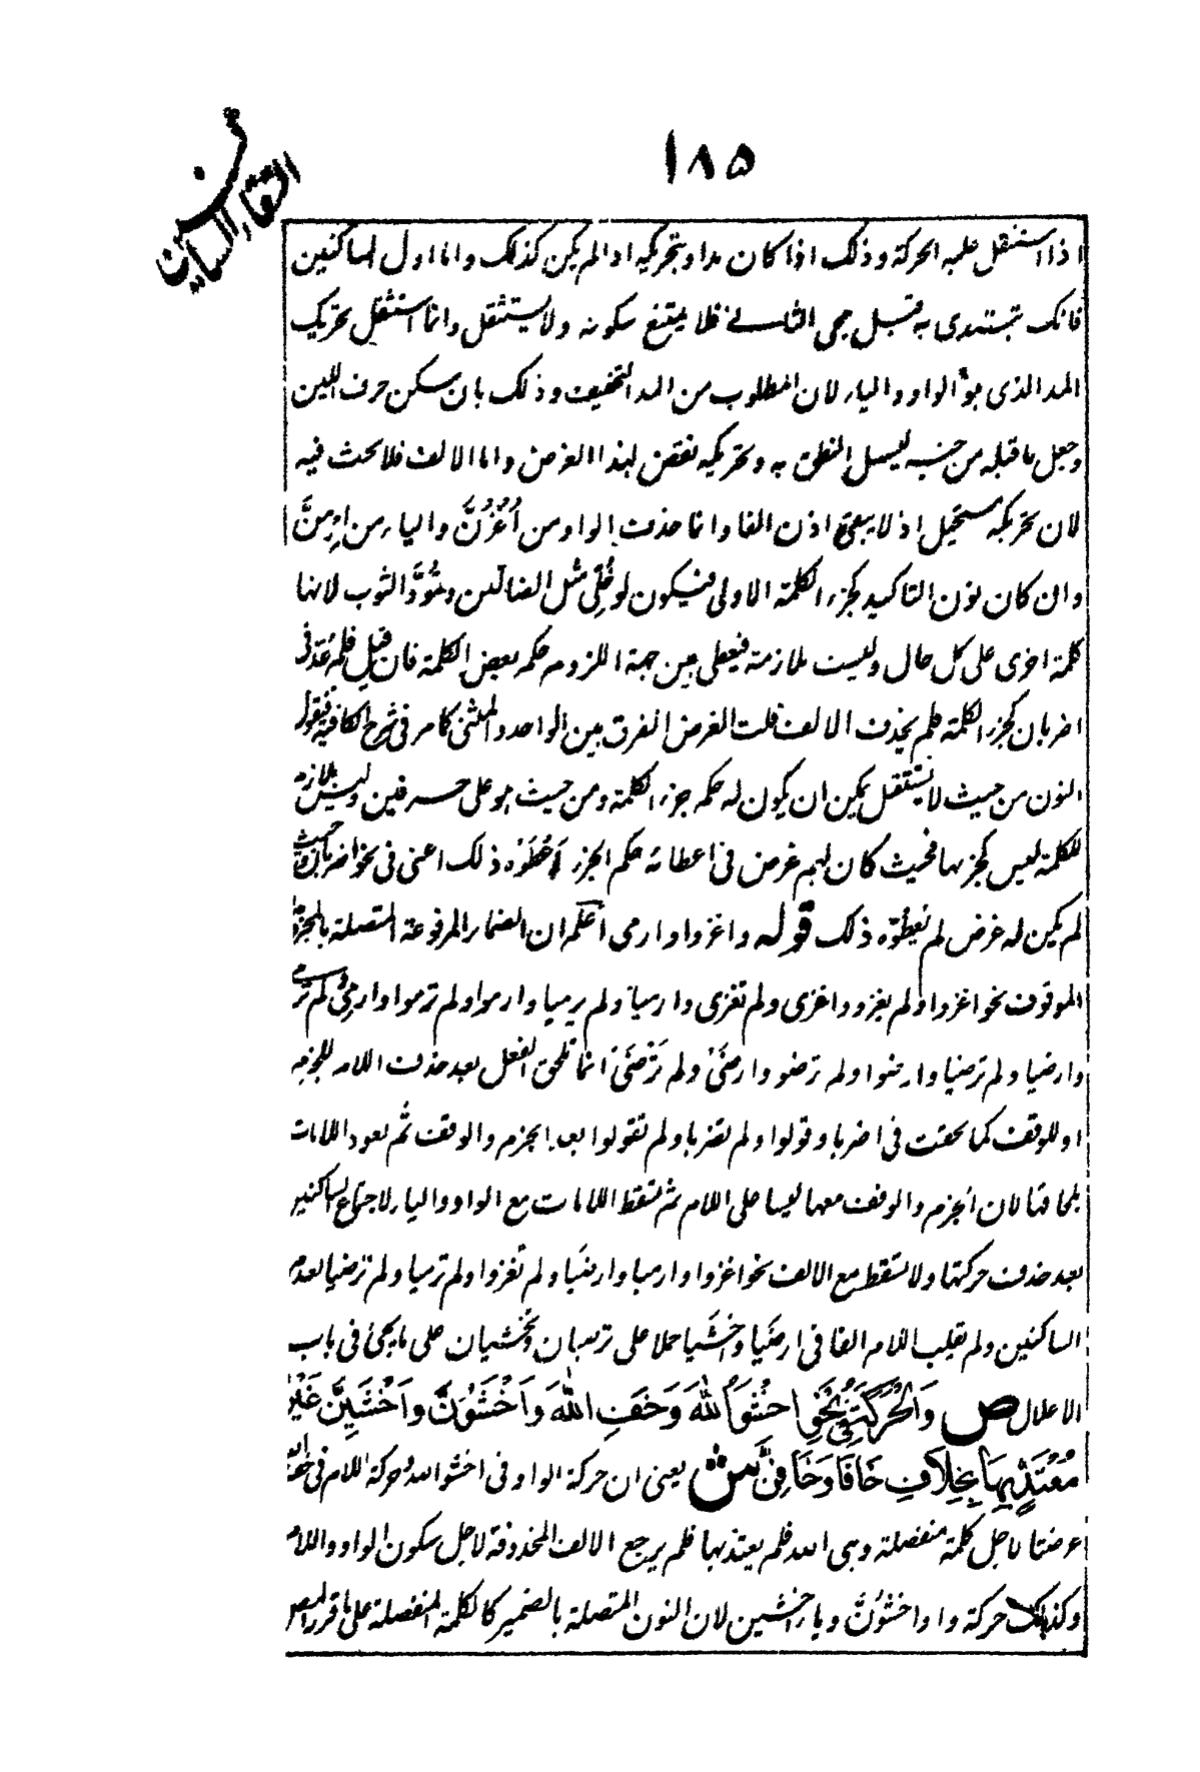 ١٨٥
التقاء الساكنين
اذا استثقل عليه الحركة وذلك اذا كان مدا وبتحريكه اذا لم يكن كذلك واما اول الساكنين
فانك تبتدى به قبل مجى الثانى فلا يمتنع سكونه ولا يستثقل وانما استثقل تحريك
المد الذى هو الواو والياء لان المطلوب من المد التخفيف وذلك بان سكن حرف اللين
وجعل ما قبله من جنسه ليسهل النطق به وتحريكه نقض لهذا الغرض واما الالف فلا بحث فيه
لان تحريكه مستحيل اذ لا يبقى اذن الفا وانما حذفت الواو من اُغْزُنَّ والياء من اِرْمِنَّ
وان كان نون التاكيد كجزء الكلمة الاولى فيكون لو خُلِّى مثل الضالين وتُمُودَّ الثوب لانها
كلمة اخرى على كل حال وليست بلازمة فيعطى من جهة اللزوم حكم بعض الكلمة فان قيل فلم عد فى
اضربان كجزء الكلمة فلم يحذف الالف قلت الغرض الفرق بين الواحد والمثنى كما مر فى شرح الكافية فيقول
النون من حيث لا يستقل يمكن ان يكون له حكم جزء الكلمة ومن حيث هو على حرفين وليس بلازم
للكلمة ليس كجزءها فحيث كان لهم غرض فى اعطائه حكم الجزء اَعْطَوْه ذلك اعنى فى نحو اضربان وحيث
لم يكن له غرض لم يُعطُوه ذلك قوله واغزوا وارمى اعلم ان الضمائر المرفوعة المتصلة بالمجزوم
الموقوف نحو اغزوا ولم يغزوا واغزى ولم تغزى وارميا ولم يرميا وارموا ولم ترموا وارمى ولم ترمى
وارضيا ولم ترضيا وارضوا ولم ترضوا وارضَىْ ولم تَرْضَىْ انما تلحق الفعل بعد حذف اللام للجزم
او للوقف كما لحقت فى اضربا وقولوا ولم تضربا ولم تقولوا بعد الجزم والوقف ثم يعود اللامات
بلحاقها لان الجزم والوقف معها ليسا على اللام ثم تسقط اللامات مع الواو والياء لاجتماع الساكنين
بعد حذف حركتها ولا تسقط مع الالف نحو اغزوا وارميا وارضيا ولم تغزوا ولم ترميا ولم ترضيا لعدم
الساكنين ولم يقلب اللام الفا فى ارضَيا واخشَيا حملا على ترضيان وتخشيان على ما يجئ فى باب
الاعلال ص وَالْحَرَكَةُ فِى نَحْوِ اخْشَوُا اللهَ وَخَفِ اللهَ وَاخْشَوُنَّ وَاخْشَيِنَّ غَيْرُ
مُعْتَدٍّ بِهَا بِخِلَافِ خَافَا وَخَافَنَّ ش يعنى ان حركة الواو فى اخشوا الله وحركة اللام فى خف الله
عرضتا لاجل كلمة منفصلة وهى الله فلم يعتد بها فلم يرجع الالف المحذوفة لاجل سكون الواو واللام
وكذلك حركة واو اخشوُنَّ وياء اخشين لان النون المتصلة بالضمير كالكلمة المنفصلة على ما قرر المص